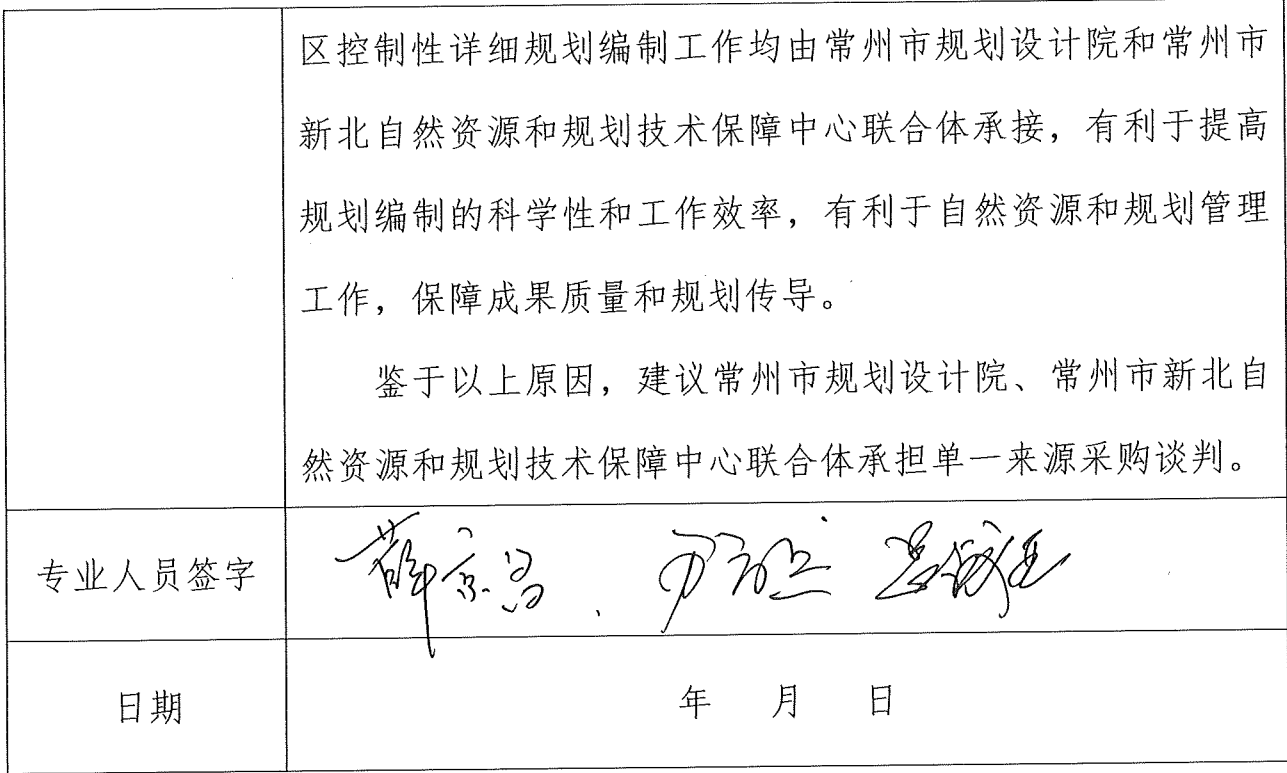 区控制性详细规划编制工作均由常州市规划设计院和常州市
新北自然资源和规划技术保障中心联合体承接，有利于提高
规划编制的科学性和工作效率，有利于自然资源和规划管理
工作，保障成果质量和规划传导。
鉴于以上原因，建议常州市规划设计院、常州市新北自
然资源和规划技术保障中心联合体承担单一来源采购谈判。
专业人员签字
日期 年 月 日